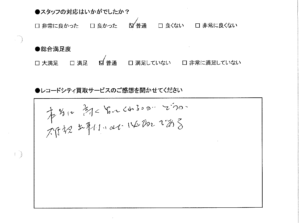 ●スタッフの対応はいかがでしたか?
□ 非常に良かった □ 良かった ☑ 普通 □ 良くない □ 非常に良くない
●総合満足度
□ 大満足 □ 満足 ☑ 普通 □ 満足していない □ 非常に満足していない
●レコードシティ買取サービスのご感想を聞かせてください
本当に高く買ってくれるのか どうか
確認出来ないので 心配である